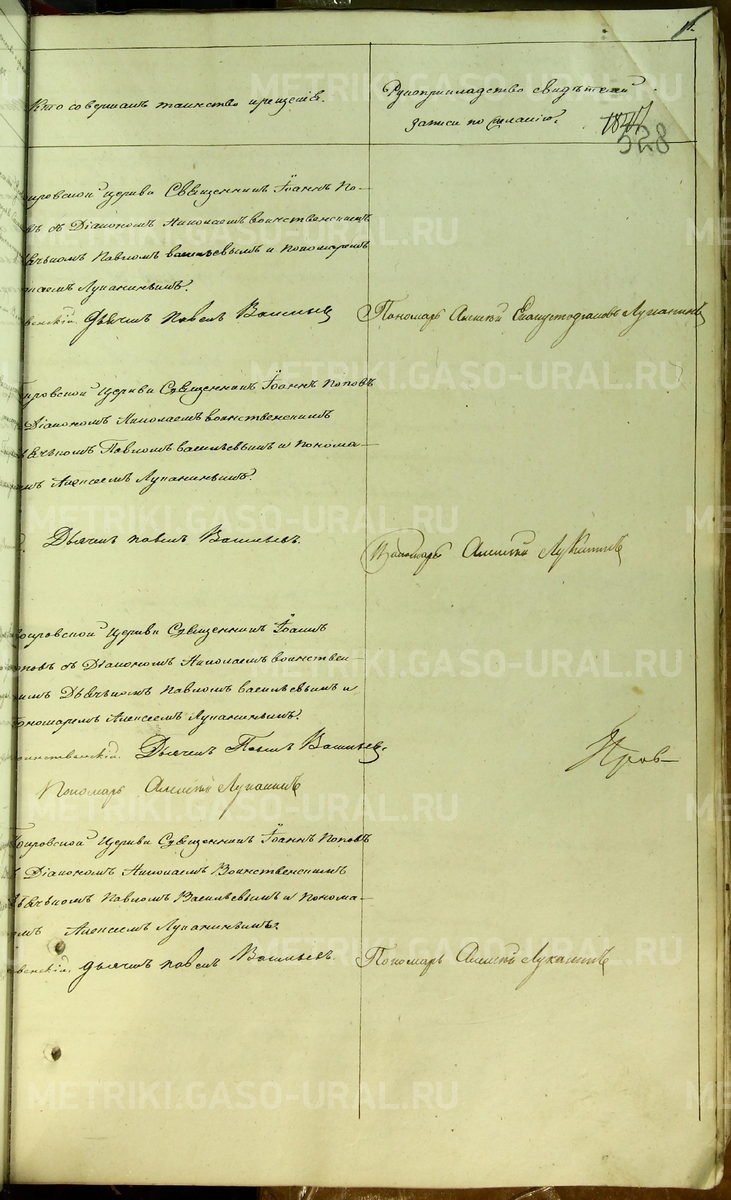 Кто совершалъ таинство крещенія.
Рукоприкладство свидѣтелей
записи по желанію.
528
Церкви Священникъ Іоаннъ По-
съ Діакономъ Николаемъ воинственскимъ
Павломъ васильевымъ и пономаремъ
Лукanинымъ.
Дьячекъ Павелъ Васильевъ
Пономарь Алексѣй Лукaнинъ
Церкви Священникъ Іоаннъ Поповъ
Діакономъ Николаемъ воинственскимъ
Павломъ васильевымъ и понома-
Алексеемъ Лукaнинымъ.
Дьячекъ павелъ Васильевъ.
Пономарь Алексѣй Лукaнинъ
Церкви Священникъ Іоаннъ
съ Діакономъ Николаемъ воинствен-
Дьячкомъ Павломъ васильевымъ и
Пономаремъ Алексеемъ Лукaнинымъ.
Дьячекъ Павелъ Васильевъ,
Пров-
Пономарь Алексѣй Лукaнинъ
Церкви Священникъ Іоаннъ Поповъ
Діакономъ Николаемъ Воинственскимъ
Павломъ Васильевымъ и Понома-
Алексеемъ Лукaнинымъ.
дьячекъ павелъ Васильевъ.
Пономарь Алексѣй Лукaнинъ
METRIKI.GASO-URAL.RU